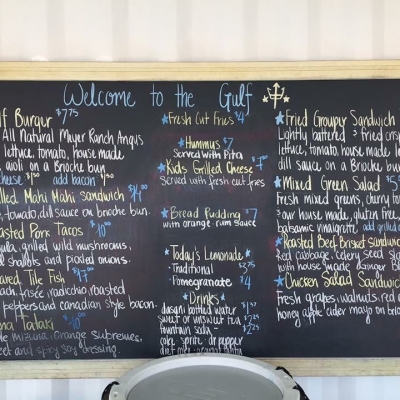 Welcome to the Gulf
Burger $7.75
All Natural Meyer Ranch Angus
lettuce, tomato, house made
on a Brioche bun.
cheese $1.00 add bacon
Mahi Mahi sandwich $14.00
tomato, dill sauce on brioche bun.
Pork Tacos $10.00
grilled wild mushrooms,
shallots and pickled onions.
Tile Fish
radicchio, roasted
peppers and canadian style bacon.
Tataki
mizuna, orange supremes,
and spicy soy dressing.
Fresh Cut Fries $4
Hummus $7
Served with Pita
Kids Grilled Cheese
Served with fresh cut fries
Bread Pudding $7
with orange rum sauce
Today's Lemonade
Traditional $3.75
Pomegranate $4
Drinks
dasani bottled water
sweet or unsweet tea
fountain soda $2.25
coke, sprite, dr pepper
Fried Grouper Sandwich
Lightly battered & fried crisp
lettuce, tomato, house made
dill sauce on a Brioche
Mixed Green Salad
Fresh mixed greens, cherry
our house made, gluten free,
balsamic vinaigrette add grilled
Roasted Beef Brisket sandwich
Red cabbage, celery seed
with house made
Chicken Salad Sandwich
Fresh grapes, walnuts, red
honey apple cider mayo on